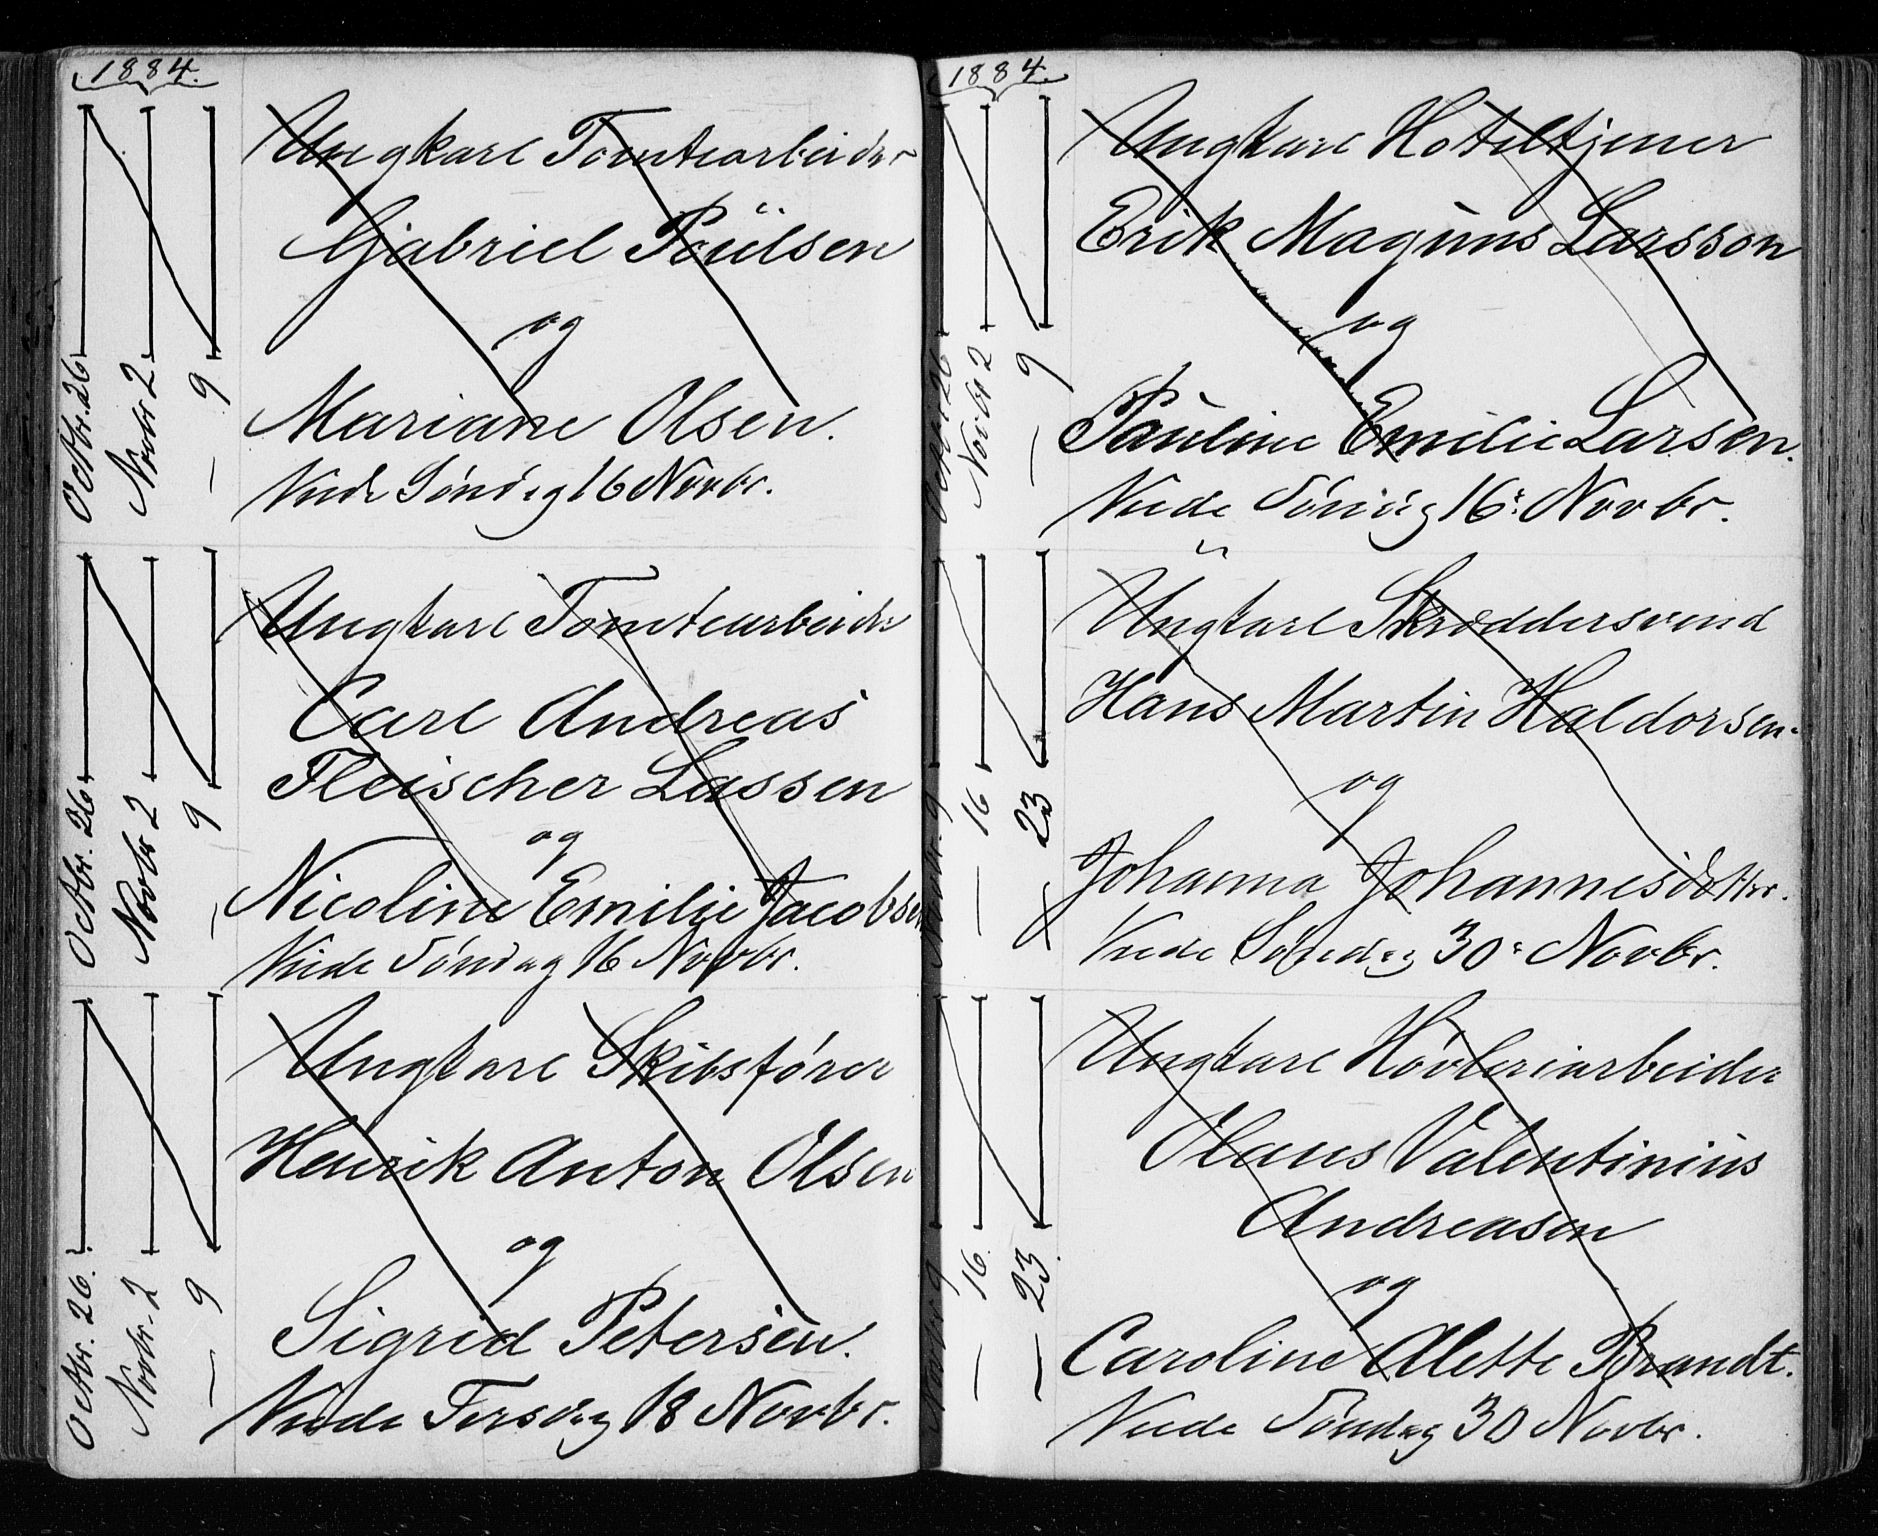 1884.
Octbr. 26
Novbr 2
— 9
Ungkarl Tomtearbeider
Gabriel Poülsen
og
Mariane Olsen.
Viede Søndag 16 Novbr.
Octbr. 26
Novbr 2
— 9
Ungkarl Tomtearbeider
Carl Andreas
Fleischer Lassen
og
Nicoline Emilie Jacobsen
Viede Søndag 16 Novbr.
Octbr. 26.
Novbr. 2
— 9
Ungkarl Skibsfører
Henrik Anton Olsen
og
Sigrid Petersen.
Viede Tirsdag 18 Novbr.
1884.
Octbr 26
Novbr 2
— 9
Ungkarl Hoteltjener
Erik Magnus Larsson
og
Pauline Emilie Larsen.
Viede Søndag 16: Novbr.
Novbr. 9
— 16
— 23
Üngkarl Skræddersvend
Hans Martin Haldorsen.
og
Johanna Johannesdotter.
Viede Søndag 30: Novbr.
Novbr 9
— 16.
— 23.
Ungkarl Høvleriarbeider
Olaus Valentinius
Andreasen
og
Caroline Alette Brandt.
Viede Søndag 30 Novbr.